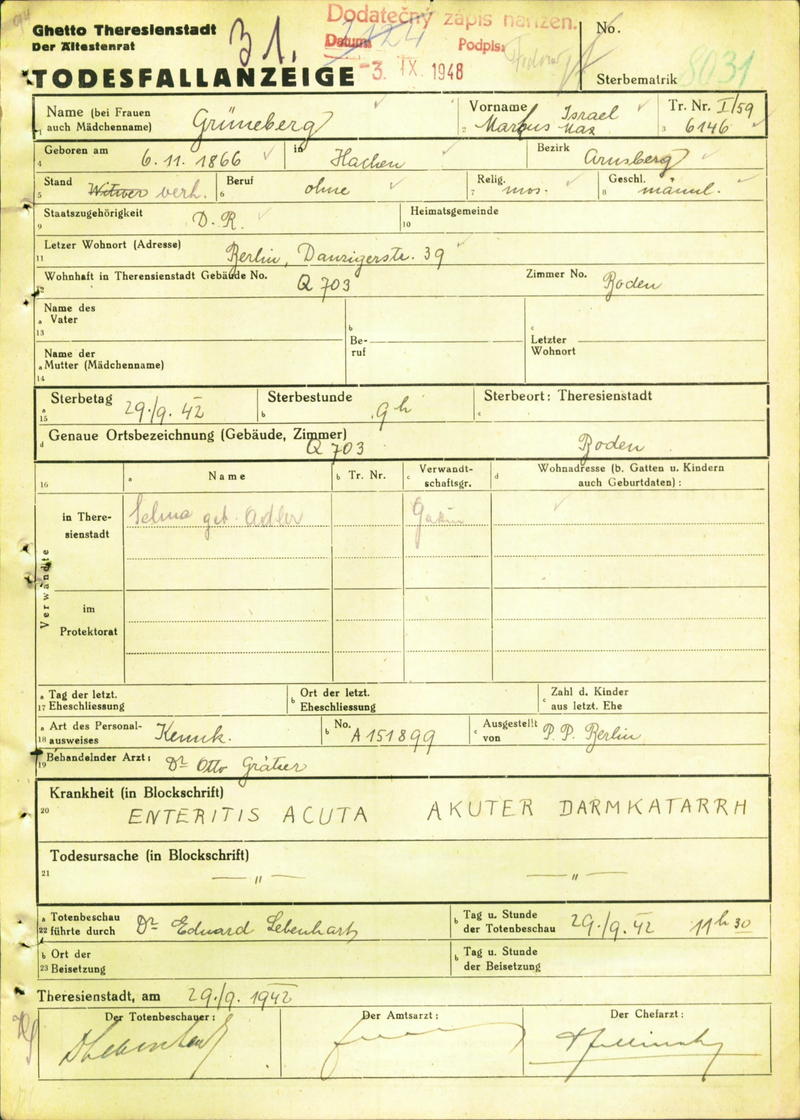 Ghetto Theresienstadt
Der Ältestenrat
31.
Dodatečný zápis nařízen.
Datum
Podpis:
-3. IX. 1948
No.
Sterbematrik 8031
TODESFALLANZEIGE
Name (bei Frauen auch Mädchenname) Grüneberg
1
Vorname Israel
2 Markus Max
Tr. Nr. I/59
3 6146
Geboren am 6.11. 1866 in Hachen Bezirk Arnsberg
4
Stand Witwer verh. Beruf ohne Relig. mos. Geschl. männl.
5 6 7 8
Staatszugehörigkeit D.R. Heimatsgemeinde
9 10
Letzer Wohnort (Adresse) Berlin, Danzigerstr. 39
11
Wohnhaft in Therensienstadt Gebäude No. Q 703 Zimmer No. Boden
12
Name des
a Vater
13
b
Be-
ruf
c
Letzter
Wohnort
Name der
a Mutter (Mädchenname)
14
Sterbetag 29./9. 42 Sterbestunde 9 h Sterbeort: Theresienstadt
a 15 b c
d Genaue Ortsbezeichnung (Gebäude, Zimmer) Q 703 Boden
16 a Name b Tr. Nr. c Verwandt-schaftsgr. d Wohnadresse (b. Gatten u. Kindern auch Geburtdaten):
Verwandte
in There-
sienstadt
Selma geb. Adler Gattin
im
Protektorat
a Tag der letzt.
17 Eheschliessung
b Ort der letzt.
Eheschliessung
c Zahl d. Kinder
aus letzt. Ehe
a Art des Personal-
18 ausweises Kennk.
b No. A 151899
c Ausgestellt
von P. P. Berlin
Behandelnder Arzt: Dr Otto
19
Krankheit (in Blockschrift)
20 ENTERITIS ACUTA AKUTER DARMKATARRH
Todesursache (in Blockschrift)
21 — " — — " —
a Totenbeschau
22 führte durch Dr Eduard Lebenhart
b Tag u. Stunde
der Totenbeschau 29./9. 42 11 h 30
b Ort der
23 Beisetzung
b Tag u. Stunde
der Beisetzung
Theresienstadt, am 29./9. 1942
Der Totenbeschauer: Der Amtsarzt: Der Chefarzt: